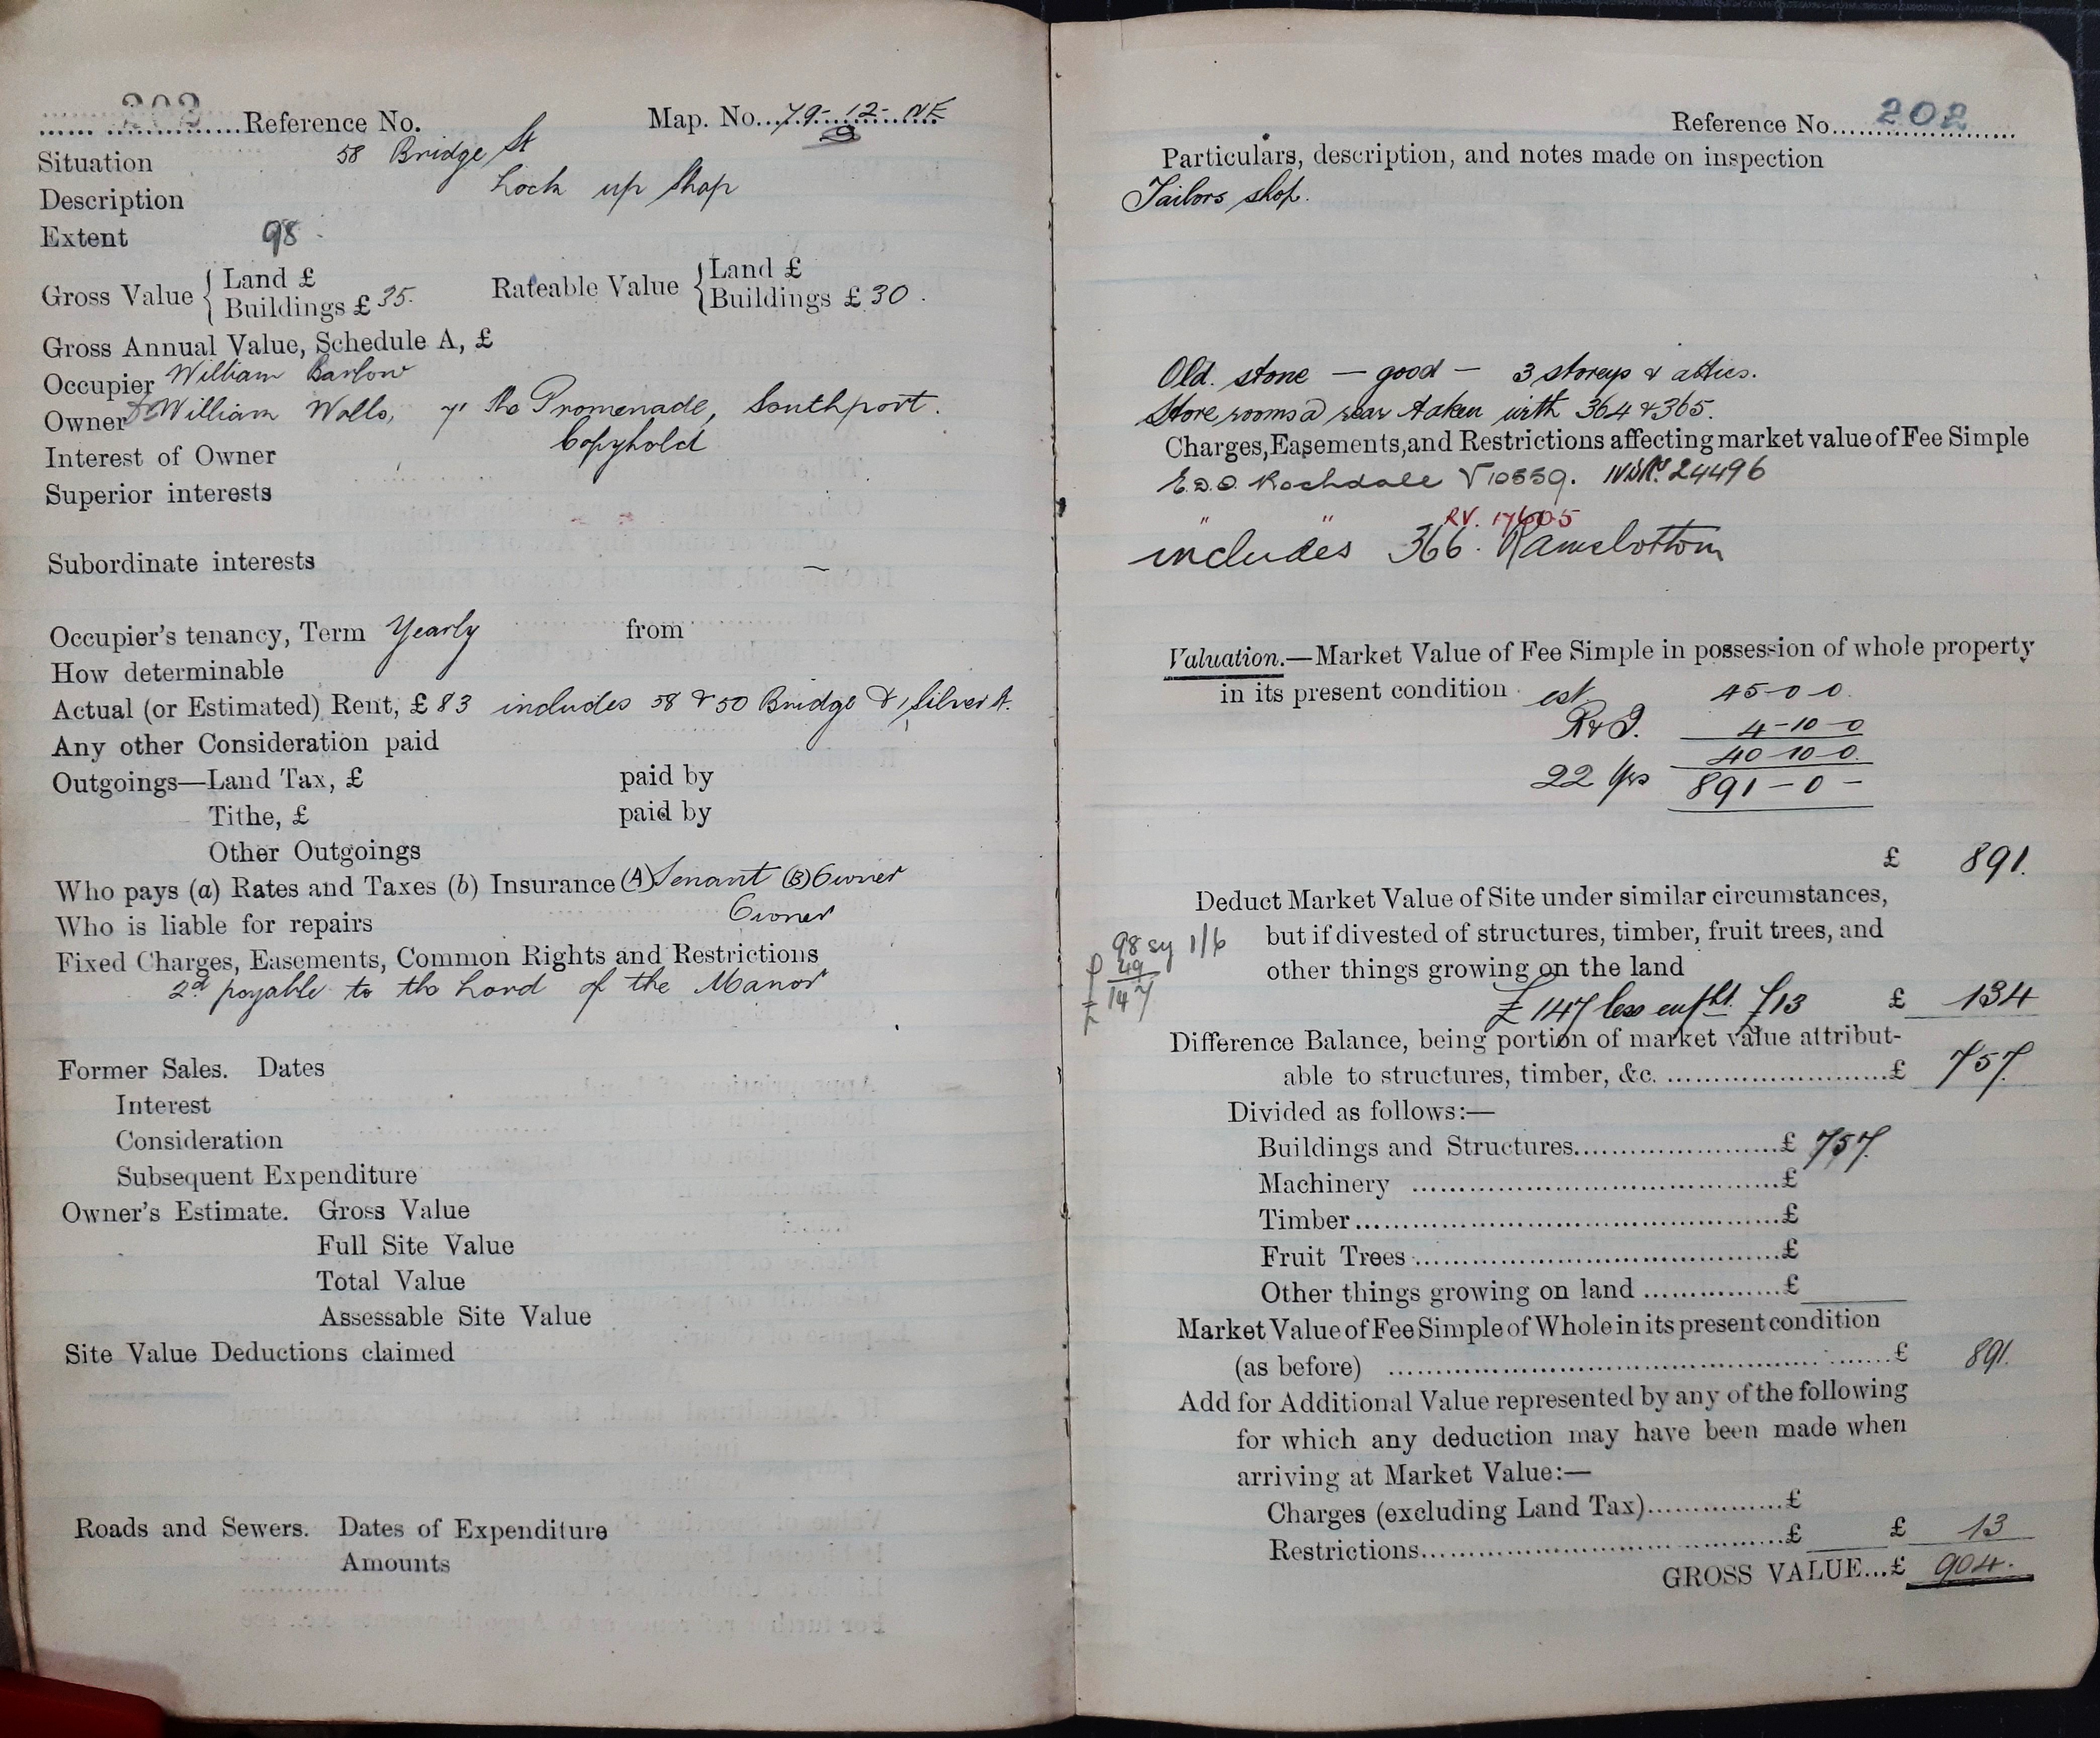 202 Reference No. Map. No. 79-12-NE
9
Situation 58 Bridge St
Description Lock up Shop
Extent 98
Gross Value { Land £
Buildings £ 35. Rateable Value { Land £
Buildings £ 30.
Gross Annual Value, Schedule A, £
Occupier William Barlow
Owner William Walls, The Promenade, Southport.
Interest of Owner Copyhold
Superior interests
Subordinate interests —
Occupier's tenancy, Term Yearly from
How determinable
Actual (or Estimated) Rent, £ 83 includes 58 & 50 Bridge & 1, Silver St.
Any other Consideration paid
Outgoings—Land Tax, £ paid by
Tithe, £ paid by
Other Outgoings
Who pays (a) Rates and Taxes (b) Insurance (A) Tenant (B) Owner
Who is liable for repairs Owner
Fixed Charges, Easements, Common Rights and Restrictions
2d payable to the Lord of the Manor
Former Sales. Dates
Interest
Consideration
Subsequent Expenditure
Owner's Estimate. Gross Value
Full Site Value
Total Value
Assessable Site Value
Site Value Deductions claimed
Roads and Sewers. Dates of Expenditure
Amounts
Reference No. 202
Particulars, description, and notes made on inspection
Tailors shop.
Old. stone — good — 3 storeys & attics.
Store rooms @ rear taken with 364 & 365.
Charges, Easements, and Restrictions affecting market value of Fee Simple
E.D.O. Rochdale V10559. 24496
" " RV. 17605
includes 366. Ramsbottom
Valuation.—Market Value of Fee Simple in possession of whole property
in its present condition est 45-0-0.
R & I. 4-10-0
40-10-0.
22 Yrs 891-0-
£ 891.
Deduct Market Value of Site under similar circumstances,
but if divested of structures, timber, fruit trees, and
other things growing on the land
98 sy 1/6
49
£ 147
£147 less £13 £ 134
Difference Balance, being portion of market value attribut-
able to structures, timber, &c. £ 757.
Divided as follows:—
Buildings and Structures £ 757.
Machinery £
Timber £
Fruit Trees £
Other things growing on land £
Market Value of Fee Simple of Whole in its present condition
(as before) £ 891.
Add for Additional Value represented by any of the following
for which any deduction may have been made when
arriving at Market Value:—
Charges (excluding Land Tax) £
Restrictions £ £ 13
GROSS VALUE...£ 904.